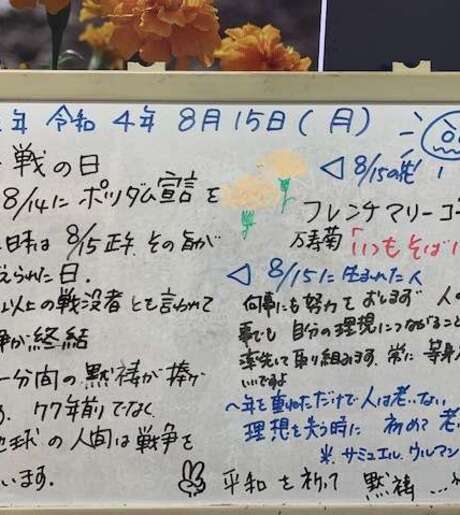 年 令和 4年 8月15日(月)
戦の日
8/14に ポツダム宣言を
日本は 8/15正午 その旨が
えられた日.
以上の戦没者 とも言われて
争が終結
一分間の黙祷が捧が
す. 77年前りでなく
地球の人間は戦争を
います.
◁ 8/15の花
フレンチマリーゴ
万寿菊 「いつもそばに
◁ 8/15に生まれた人
何事にも努力をおしまず 人の
事でも 自分の理想につながること
率先して取り組みます. 常に 等身
いいですよ
〜年を重ねただけで人は老いない
理想を失う時に 初めて 老
米. サミュエル. ウルマン
平和を祈って 黙祷 ...